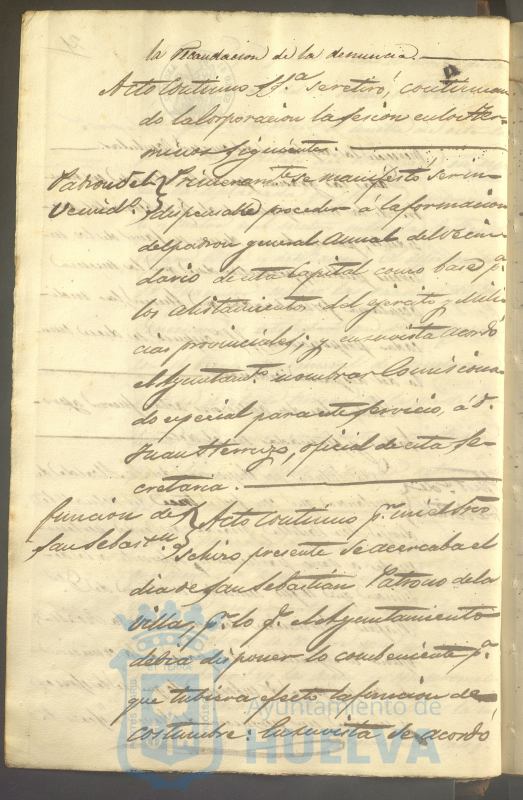 la recaudacion de la denuncia.
Acto continuo S.Sª. se retiró, continuan-
do la Corporacion la sesion en los ter-
minos siguientes.
Padron del
Vecind.º
Primeramte. se manifestó ser in-
dispensable proceder á la formacion
del padron general anual del vecin-
dario de esta Capital como base pª.
los alistamientos del ejercito y Mili-
cias provinciales; y en su vista acordó
el Ayuntamto. nombrar Comisiona-
do especial para este servicio, á D.
Juan Herrizo, oficial de esta Se-
cretaria.
funcion de
San Sebastn.
Acto continuo pr. mi el Srio
se hizo presente se acercaba el
dia de San Sebastian Patrono de la
villa, pr. lo q. el Ayuntamiento
debia disponer lo combeniente pª.
que tubiera efecto la funcion de
costumbre: En su vista se acordó
Ayuntamiento de
HUELVA